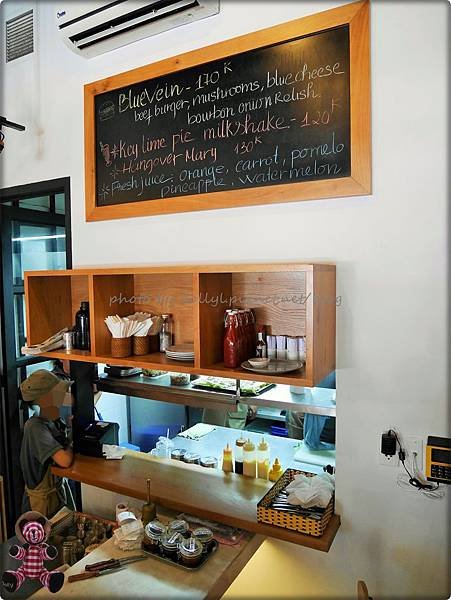 BlueVein - 170 K
beef burger, mushrooms, blue cheese
bourbon onion Relish.
Key lime pie milkshake - 120 K
Hangover Mary 130 K
Fresh juice: orange, carrot, pomelo
pineapple, watermelon